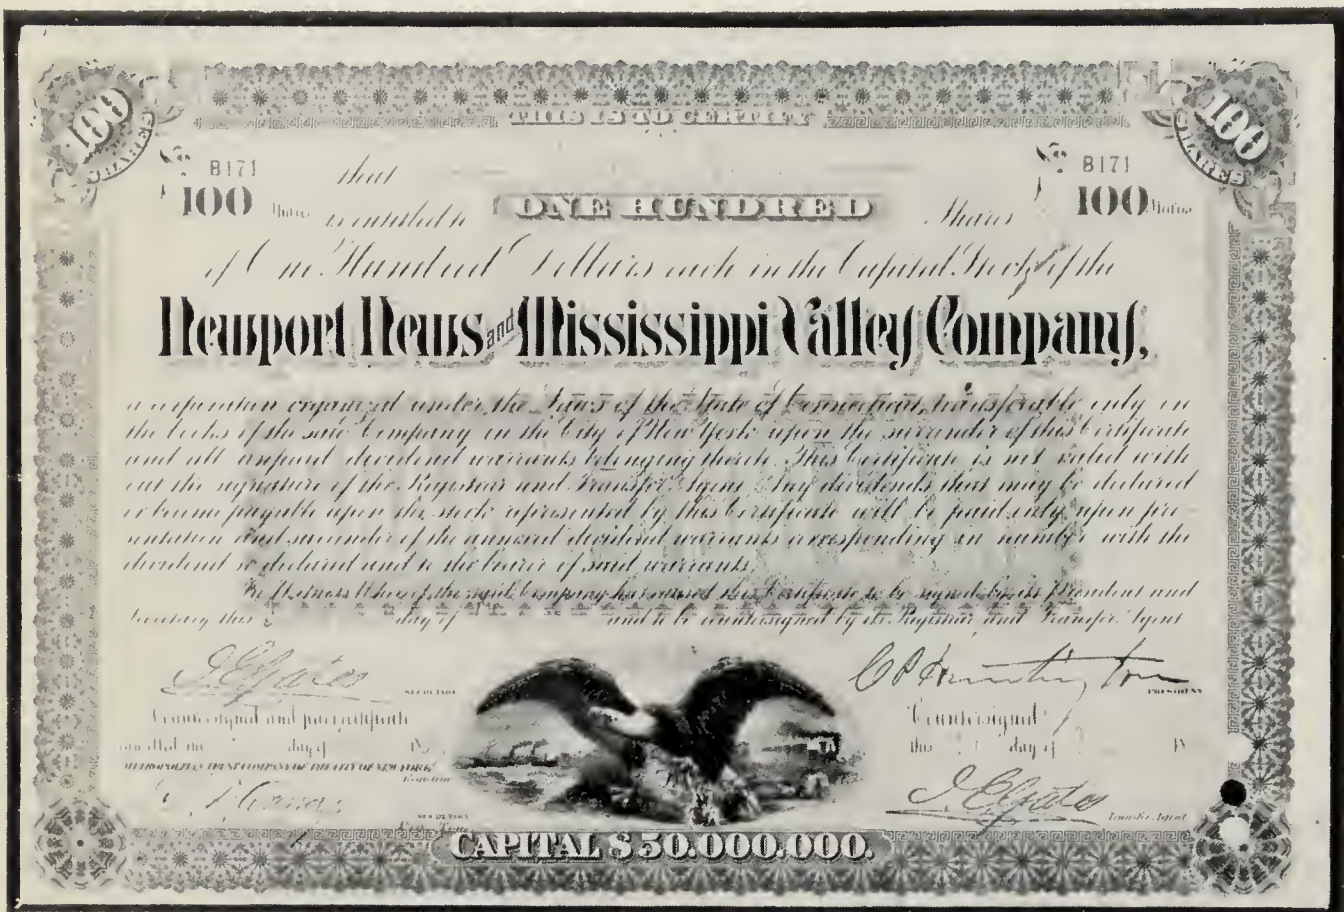 100 SHARES
100 SHARES
THIS IS TO CERTIFY
B171
B171
that
100 Shares
100 Shares
is entitled to ONE HUNDRED Shares
of One Hundred Dollars each in the Capital Stock of the
Newport News and Mississippi Valley Company,
a corporation organized under the Laws of the State of Connecticut, transferable only in
the books of the said Company in the City of New York upon the surrender of this Certificate
and all unpaid dividend warrants belonging thereto. This Certificate is not valid with
out the signature of the Registrar and Transfer Agent. Any dividends that may be declared
or become payable upon the stock represented by this Certificate will be paid only upon pre
sentation and surrender of the annexed dividend warrants corresponding in number with the
dividend so declared and to the bearer of said warrants.
In Witness Whereof the said Company has caused this Certificate to be signed by its President and
Secretary this day of and to be countersigned by its Registrar and Transfer Agent
I. E. Gates
SECRETARY
C. P. Huntington
PRESIDENT
Countersigned and prior certificate
cancelled this day of 18
METROPOLITAN TRUST COMPANY OF THE CITY OF NEW YORK
Registrar
SECRETARY
Countersigned
this day of 18
I. E. Gates
Transfer Agent
CAPITAL $50.000.000.